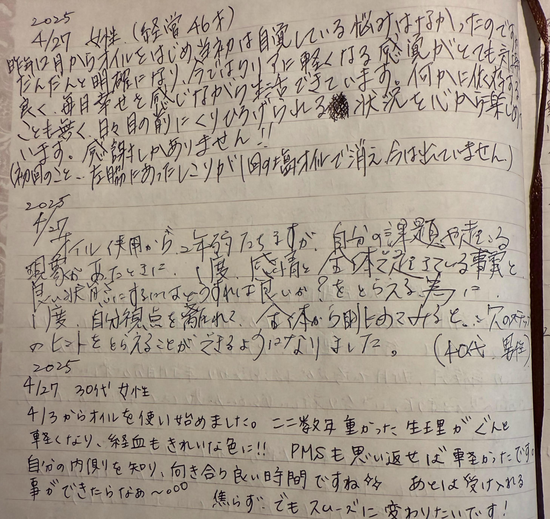 2025
4/27 女性 (経営 46才)
昨年12月からオイルをはじめ当初は自覚している悩みはなかったのです
だんだんと明確になり、今ではクリアに軽くなる感覚がとても
良く、毎日幸せを感じながら生活できています。何かに依存する
ことも無く、日々目の前にくりひろげられる 状況を心から楽しめて
います。感謝しかありません!!
(初回のこと、左脇にあったしこりが1回の塩オイルで消え、今は出ていません。)
2025
4/27
オイル使用から、2年弱たちますが、自分の課題や起こる
現象があったときに、1度、感情と全体で起きている事実と
良い状態にするにはどうすれば良いか?をとらえる為に
1度、自分視点を離れて、全体から眺めてみると、次のステップ
のヒントをとらえることができるようになりました。 (40代 男性)
2025
4/27 30代 女性
4/3からオイルを使い始めました。ここ数年重かった生理がぐんと
軽くなり、経血もきれいな色に!! PMSも思い返せば軽かったです。
自分の内側を知り、向き合う良い時間ですね あとは受け入れる
事ができたらなぁ〜。。。 焦らず、でもスムーズに変わりたいです!